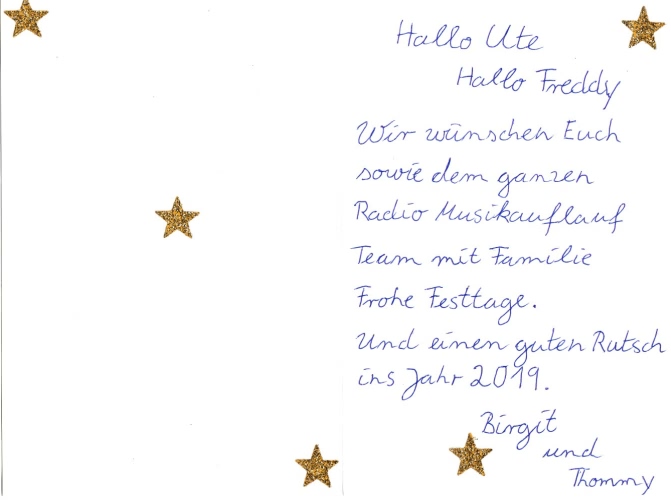 Hallo Ute
Hallo Freddy
Wir wünschen Euch
sowie dem ganzen
Radio Musikauflauf
Team mit Familie
Frohe Festtage.
Und einen guten Rutsch
ins Jahr 2019.
Birgit
und
Thommy